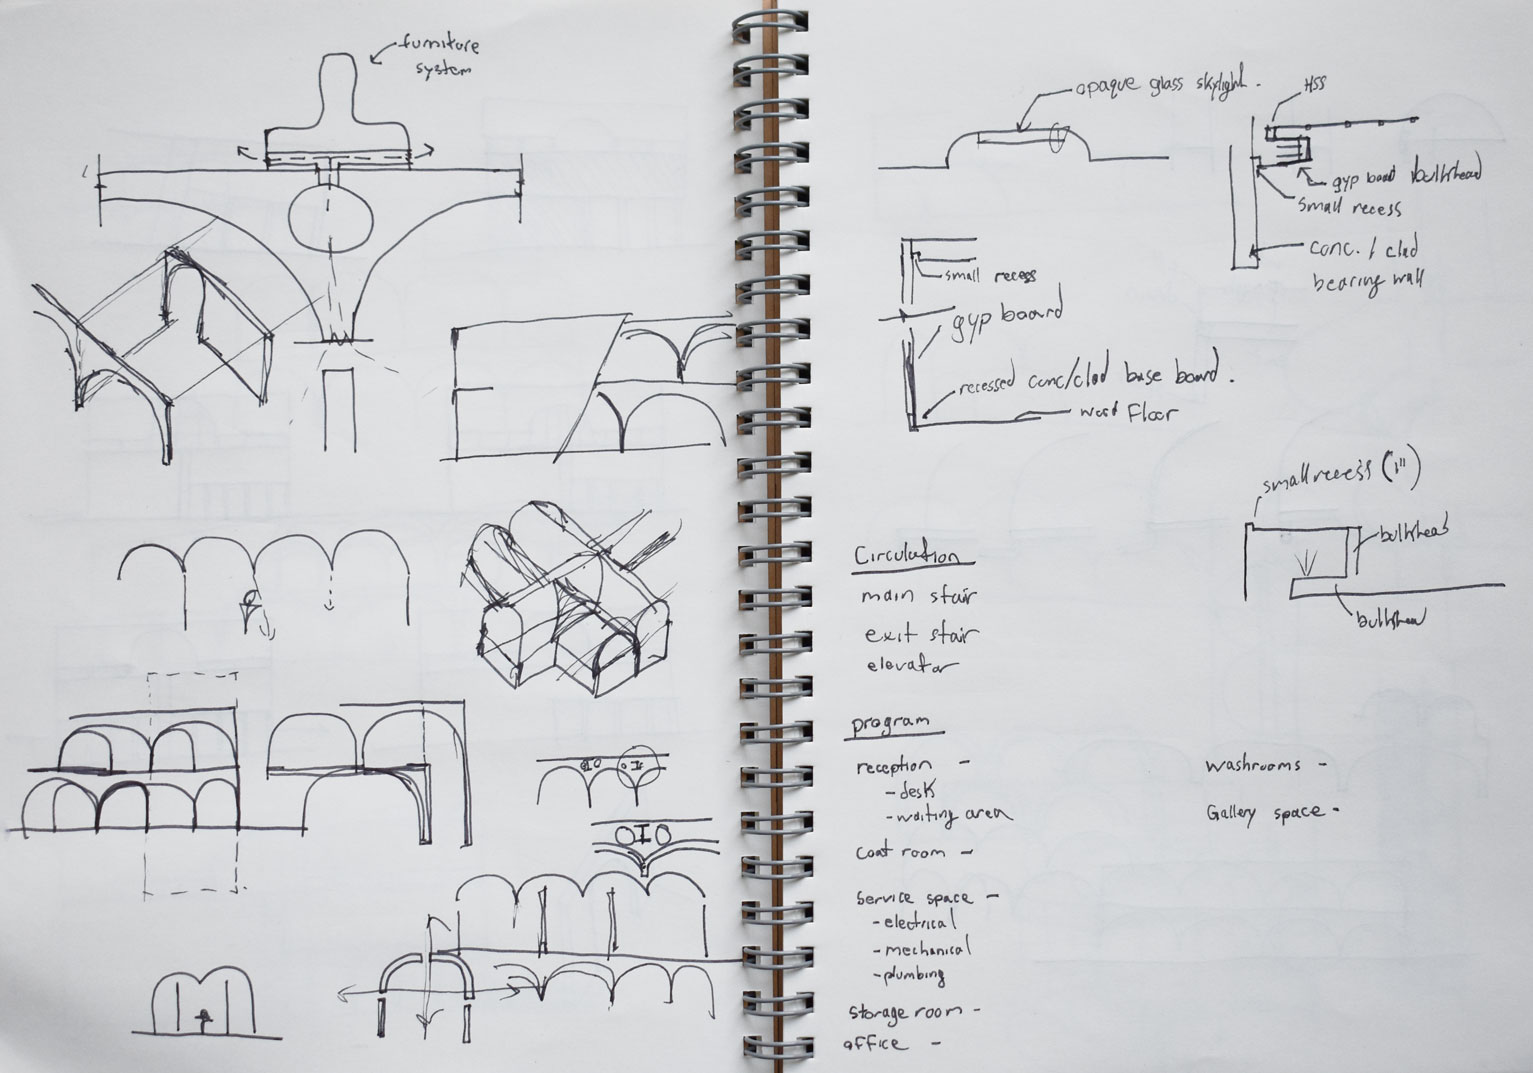 furniture
system
opaque glass skylight.
HSS
gyp board bulkhead
small recess
conc. / clad
bearing wall
small recess
gyp board
recessed conc/clad base board.
wood floor
small recess (1")
bulkhead
bulkhead
Circulation
main stair
exit stair
elevator
program
reception -
- desk
- waiting area
coat room -
service space -
- electrical
- mechanical
- plumbing
storage room -
office -
washrooms -
Gallery space -